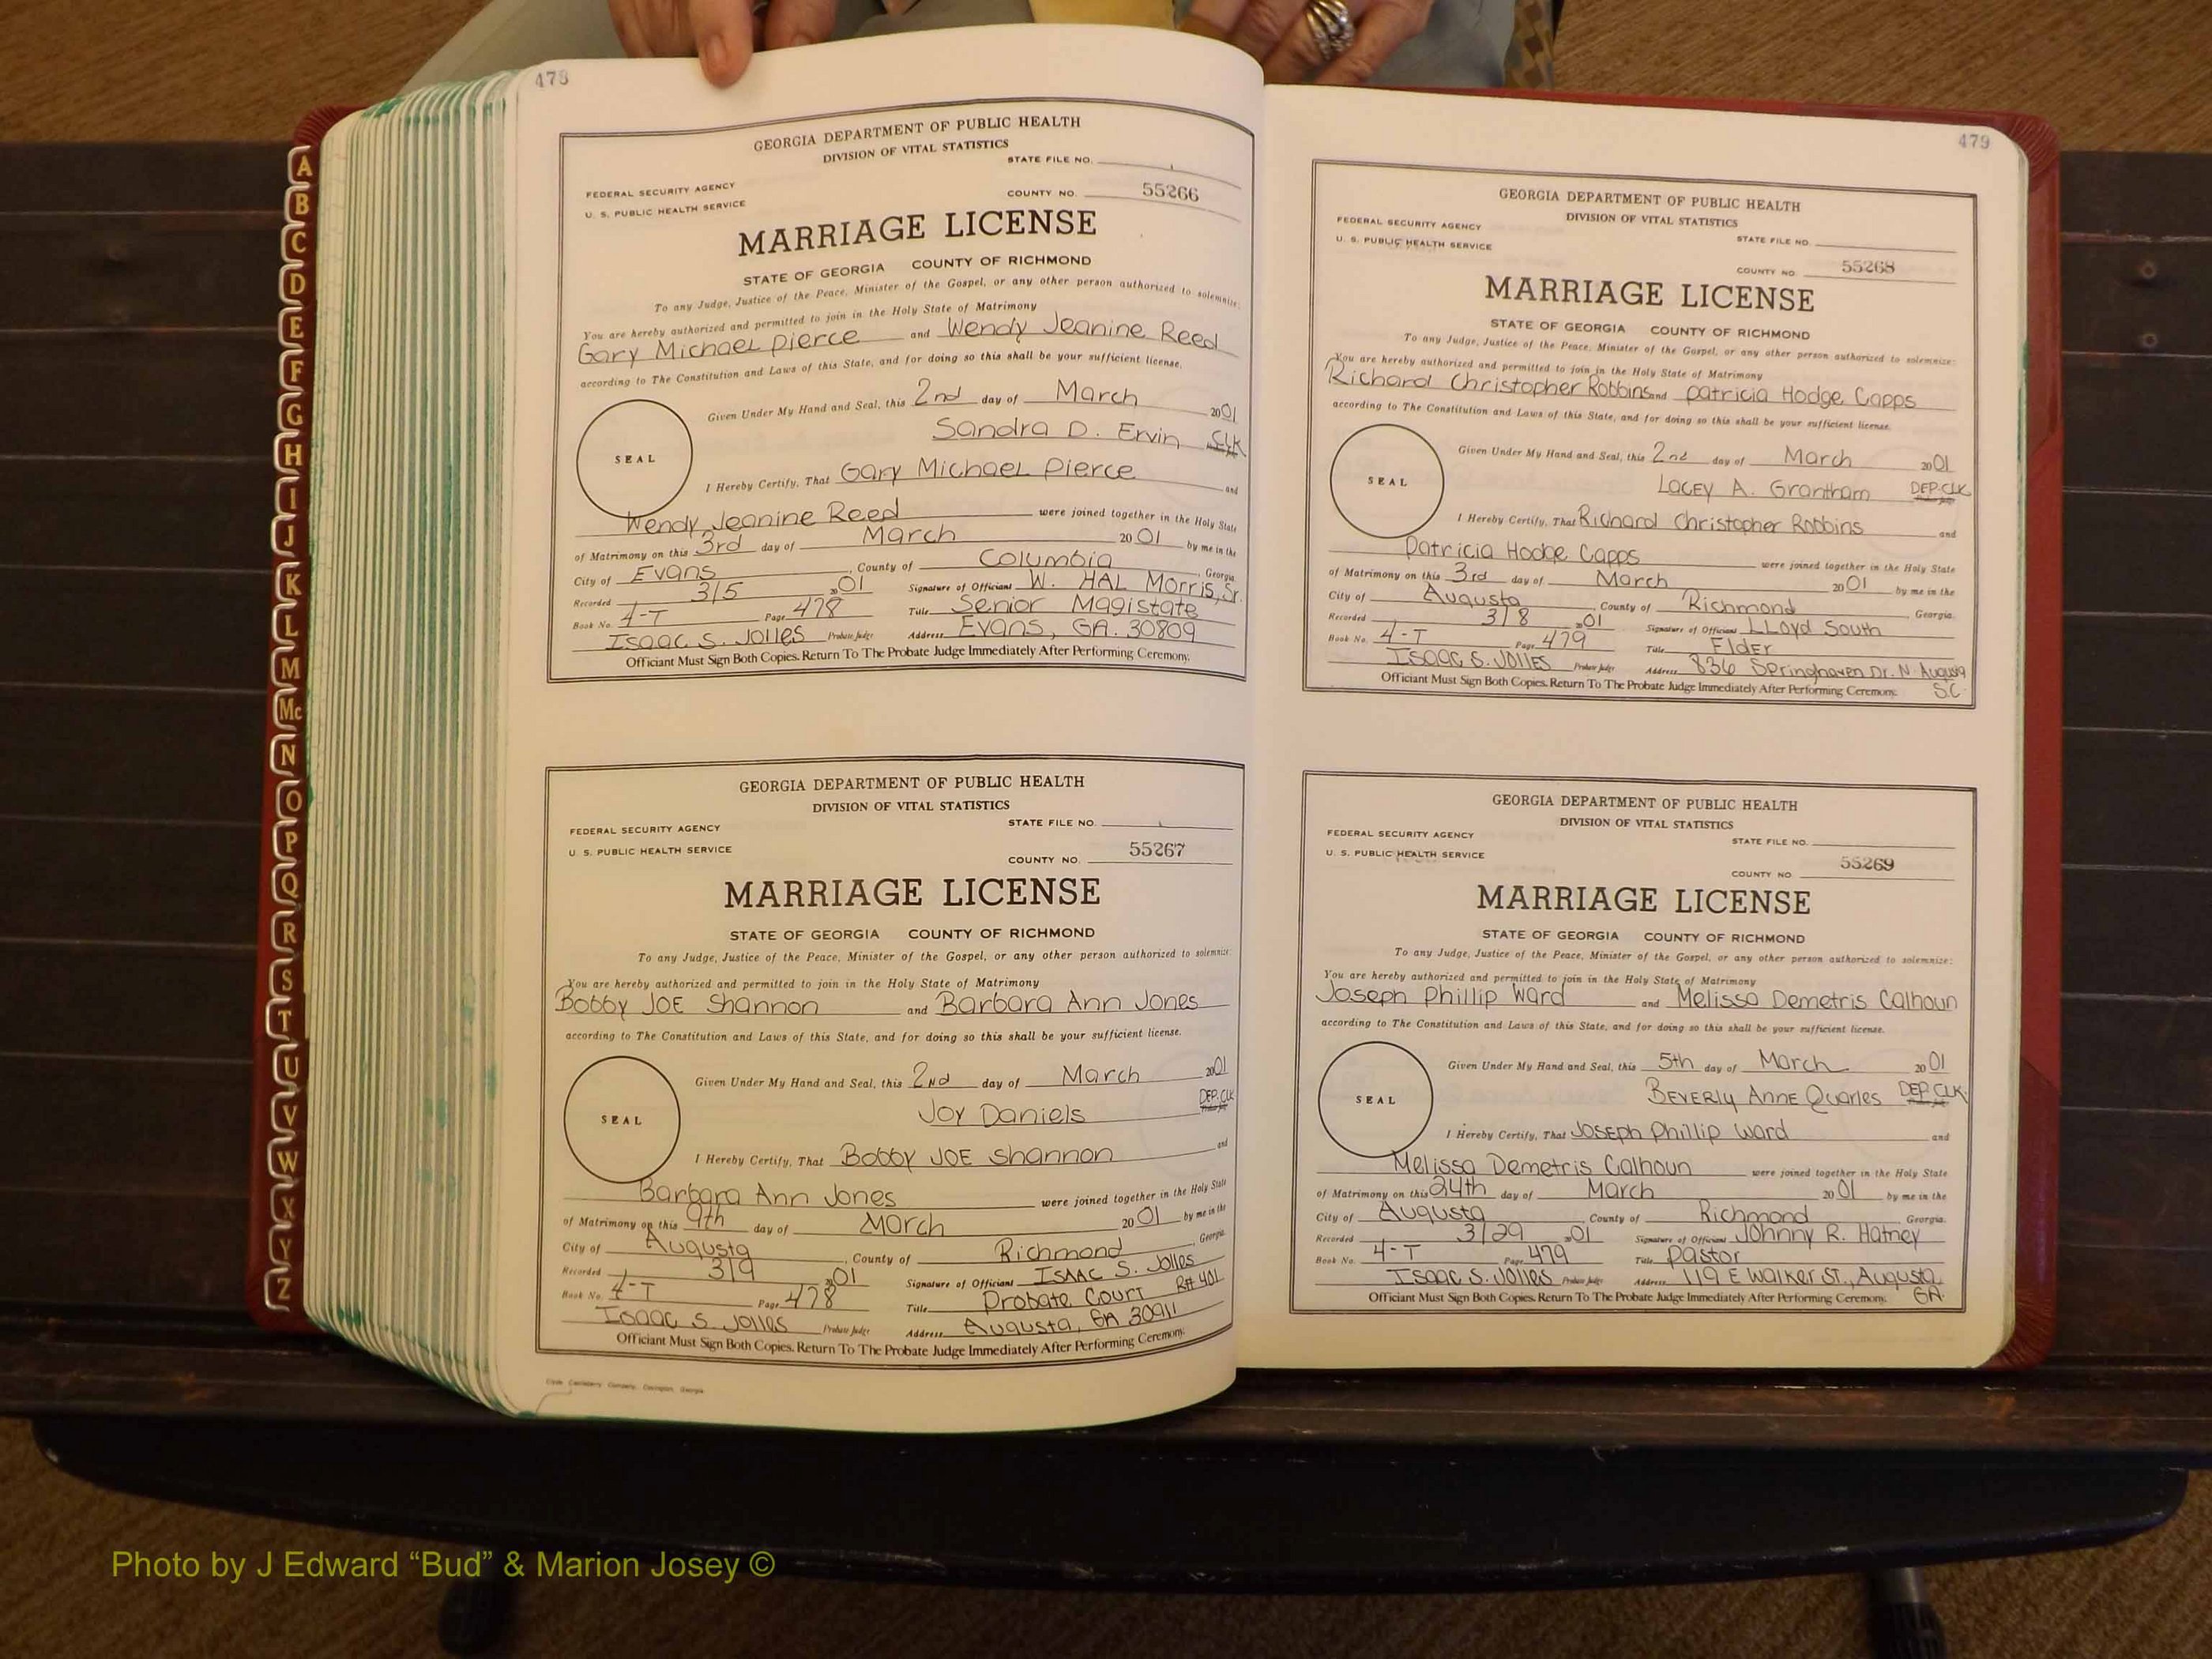 A
B
C
D
E
F
G
H
I
J
K
L
M
Mc
N
O
P
Q
R
S
T
U
V
W
X
Y
Z
478
GEORGIA DEPARTMENT OF PUBLIC HEALTH
DIVISION OF VITAL STATISTICS
STATE FILE NO.
FEDERAL SECURITY AGENCY
U. S. PUBLIC HEALTH SERVICE
COUNTY NO. 55266
MARRIAGE LICENSE
STATE OF GEORGIA COUNTY OF RICHMOND
To any Judge, Justice of the Peace, Minister of the Gospel, or any other person authorized to solemnize:
You are hereby authorized and permitted to join in the Holy State of Matrimony
Gary Michael Pierce and Wendy Jeanine Reed
according to The Constitution and Laws of this State, and for doing so this shall be your sufficient license.
Given Under My Hand and Seal, this 2nd day of March 2001
Sandra D. Ervin CLK
SEAL
I Hereby Certify, That Gary Michael Pierce and
Wendy Jeanine Reed were joined together in the Holy State
of Matrimony on this 3rd day of March 2001 by me in the
City of Evans, County of Columbia, Georgia.
Recorded 3/5 2001 Signature of Officiant W. HAL Morris, Sr.
Book No. 4-T Page 478 Title Senior Magistate
Isaac S. Jolles Probate Judge Address Evans, GA. 30809
Officiant Must Sign Both Copies. Return To The Probate Judge Immediately After Performing Ceremony.
GEORGIA DEPARTMENT OF PUBLIC HEALTH
DIVISION OF VITAL STATISTICS
STATE FILE NO.
FEDERAL SECURITY AGENCY
U. S. PUBLIC HEALTH SERVICE
COUNTY NO. 55267
MARRIAGE LICENSE
STATE OF GEORGIA COUNTY OF RICHMOND
To any Judge, Justice of the Peace, Minister of the Gospel, or any other person authorized to solemnize:
You are hereby authorized and permitted to join in the Holy State of Matrimony
Bobby JOE Shannon and Barbara Ann Jones
according to The Constitution and Laws of this State, and for doing so this shall be your sufficient license.
Given Under My Hand and Seal, this 2nd day of March 2001
Joy Daniels DEP. CLK
SEAL
I Hereby Certify, That Bobby JOE Shannon and
Barbara Ann Jones were joined together in the Holy State
of Matrimony on this 9th day of March 2001 by me in the
City of Augusta, County of Richmond, Georgia.
Recorded 3/9 2001 Signature of Officiant ISAAC S. Jolles
Book No. 4-T Page 478 Title Probate Court R# 401
Isaac S. Jolles Probate Judge Address Augusta, GA 30911
Officiant Must Sign Both Copies. Return To The Probate Judge Immediately After Performing Ceremony.
479
GEORGIA DEPARTMENT OF PUBLIC HEALTH
DIVISION OF VITAL STATISTICS
FEDERAL SECURITY AGENCY
U. S. PUBLIC HEALTH SERVICE
STATE FILE NO.
COUNTY NO. 55268
MARRIAGE LICENSE
STATE OF GEORGIA COUNTY OF RICHMOND
To any Judge, Justice of the Peace, Minister of the Gospel, or any other person authorized to solemnize:
You are hereby authorized and permitted to join in the Holy State of Matrimony
Richard Christopher Robbins and Patricia Hodge Capps
according to The Constitution and Laws of this State, and for doing so this shall be your sufficient license.
Given Under My Hand and Seal, this 2nd day of March 2001
Lacey A. Grantham DEP. CLK
SEAL
I Hereby Certify, That Richard Christopher Robbins and
Patricia Hodge Capps were joined together in the Holy State
of Matrimony on this 3rd day of March 2001 by me in the
City of Augusta, County of Richmond, Georgia.
Recorded 3/8 2001 Signature of Officiant LLoyd South
Book No. 4-T Page 479 Title Elder
ISAAC S. JOLLES Probate Judge Address 836 Springhaven Dr. N. Augusta
S.C.
Officiant Must Sign Both Copies. Return To The Probate Judge Immediately After Performing Ceremony.
GEORGIA DEPARTMENT OF PUBLIC HEALTH
DIVISION OF VITAL STATISTICS
FEDERAL SECURITY AGENCY
U. S. PUBLIC HEALTH SERVICE
STATE FILE NO.
COUNTY NO. 55269
MARRIAGE LICENSE
STATE OF GEORGIA COUNTY OF RICHMOND
To any Judge, Justice of the Peace, Minister of the Gospel, or any other person authorized to solemnize:
You are hereby authorized and permitted to join in the Holy State of Matrimony
Joseph Phillip Ward and Melissa Demetris Calhoun
according to The Constitution and Laws of this State, and for doing so this shall be your sufficient license.
Given Under My Hand and Seal, this 5th day of March 2001
BEVERLY ANNE Quarles DEP. CLK.
SEAL
I Hereby Certify, That JOSEPH Phillip Ward and
Melissa Demetris Calhoun were joined together in the Holy State
of Matrimony on this 24th day of March 2001 by me in the
City of Augusta, County of Richmond, Georgia.
Recorded 3/29 2001 Signature of Officiant Johnny R. Hatney
Book No. 4-T Page 479 Title Pastor
Isaac S. Jolles Probate Judge Address 119 E Walker ST., Augusta,
GA.
Officiant Must Sign Both Copies. Return To The Probate Judge Immediately After Performing Ceremony.
Photo by J Edward “Bud” & Marion Josey ©